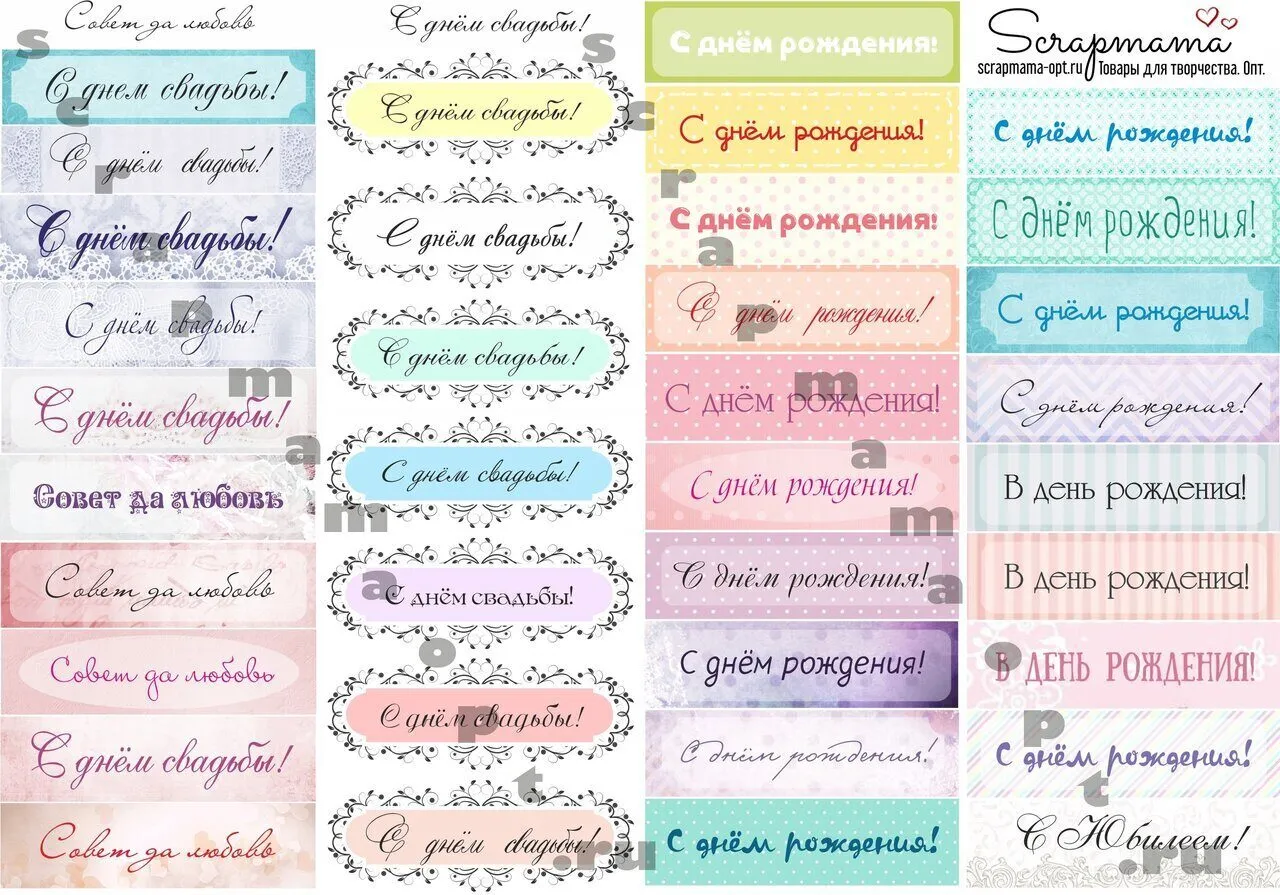 Совет да любовь
С днем свадьбы!
С днём свадьбы!
С днём свадьбы!
С днём свадьбы!
С днём свадьбы!
Совет да любовь
Совет да любовь
Совет да любовь
С днём свадьбы!
Совет да любовь
С днём свадьбы!
С днём свадьбы!
С днём свадьбы!
С днём свадьбы!
С днём свадьбы!
С днём свадьбы!
С днём свадьбы!
С днём свадьбы!
С днём рождения!
С днём рождения!
С днём рождения!
С днём рождения!
С днём рождения!
С днём рождения!
С днём рождения!
С днём рождения!
С днём рождения!
С днём рождения!
Scrapmama
scrapmama-opt.ru Товары для творчества. Опт.
С днём рождения!
С днём рождения!
С днём рождения!
С днём рождения!
В день рождения!
В день рождения!
В день рождения!
С днём рождения!
С Юбилеем!
scrapmamaopt.ru
scrapmamaopt.ru